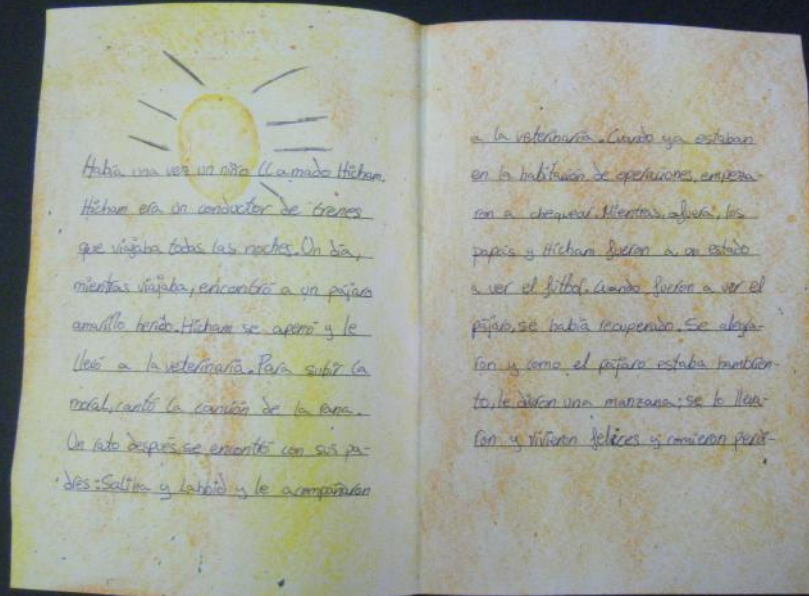 Había una vez un niño llamado Hicham.
Hicham era un conductor de trenes
que viajaba todas las noches. Un día,
mientras viajaba, encontró a un pájaro
amarillo herido. Hicham se apenó y le
llevó a la veterinaria. Para subir la
moral, cantó la canción de la rana.
Un rato después, se encontró con sus pa-
dres: Saliha y Lahbid y le acompañaron
a la veterinaria. Cuando ya estaban
en la habitación de operaciones, empeza-
ron a chequear. Mientras, afuera, los
papás y Hicham fueron a un estado
a ver el fútbol. Cuando fueron a ver el
pájaro, se había recuperado. Se alegra-
ron y como el pájaro estaba hambrien-
to, le dieron una manzana; se lo lleva-
ron y vivieron felices y comieron perdi-